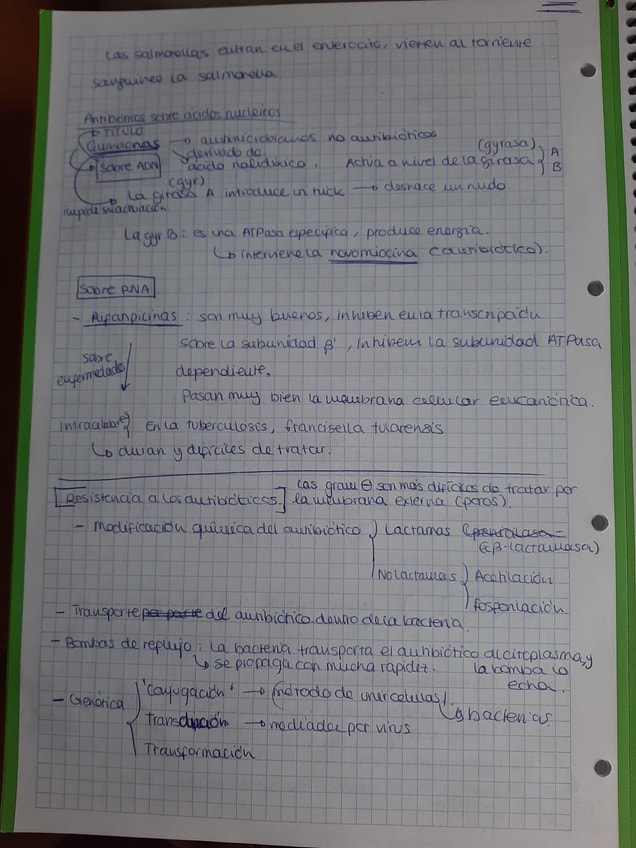 Las salmorellas entran en el enterocito, vierten al torriente
sanguineo la salmorella.
Antibioticos sobre ácidos nucleicos
TITULO
Quinolonas → antimicrobianos no antibióticos
derivado de
ácido nalidixico. Actua a nivel de la girasa (gyrasa) A
B
Sobre ADN
(gyr)
La girasa A introduce un nick → deshace un nudo.
impide su actuación
La gyr B: es una ATPasa especifica, produce energia.
interviene la novomiocina (antibiótico).
Sobre RNA
- Rifanpicinas: son muy buenos, inhiben en la transcripción
sobre la subunidad β', Inhiben la subunidad ATPasa
sobre enfermedades
dependiente.
Pasan muy bien la membrana celular eeucariótica.
Intracelulares En la tuberculosis, francisella tularensis
duran y dificiles de tratar.
Las gram ⊖ son más dificiles de tratar por
Resistencia a los antibióticos. la membrana externa (poros).
- Modificación química del antibiótico Lactamas
(β-lactamasa)
No lactamas Acetilación
Fosforilación.
- Transporte del antibiótico dentro de la bacteria.
- Bombas de reflujo: la bacteria transporta el antibiótico al citoplasma, y
se propaga con mucha rapidez. la bomba lo
echa.
- Genórica 'conjugación' → (método de unir celulas)
bacterias
transducción → mediada por virus
Transformación